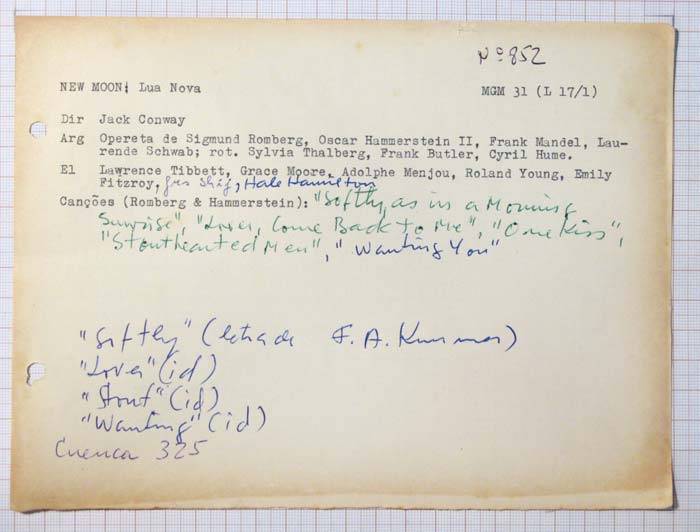 Nº 852
NEW MOON: Lua Nova MGM 31 (L 17/1)
Dir Jack Conway
Arg Opereta de Sigmund Romberg, Oscar Hammerstein II, Frank Mandel, Lau-
rende Schwab; rot. Sylvia Thalberg, Frank Butler, Cyril Hume.
El Lawrence Tibbett, Grace Moore, Adolphe Menjou, Roland Young, Emily
Fitzroy, Gus Shy, Hale Hamilton
Canções (Romberg & Hammerstein): "Softly, as in a Morning
Sunrise", "Lover, Come Back to Me", "One Kiss",
"Stouthearted Men", "Wanting You"
"Softly" (letra de F. A. Kummer)
"Lover" (id)
"Stout" (id)
"Wanting" (id)
Cuenca 325